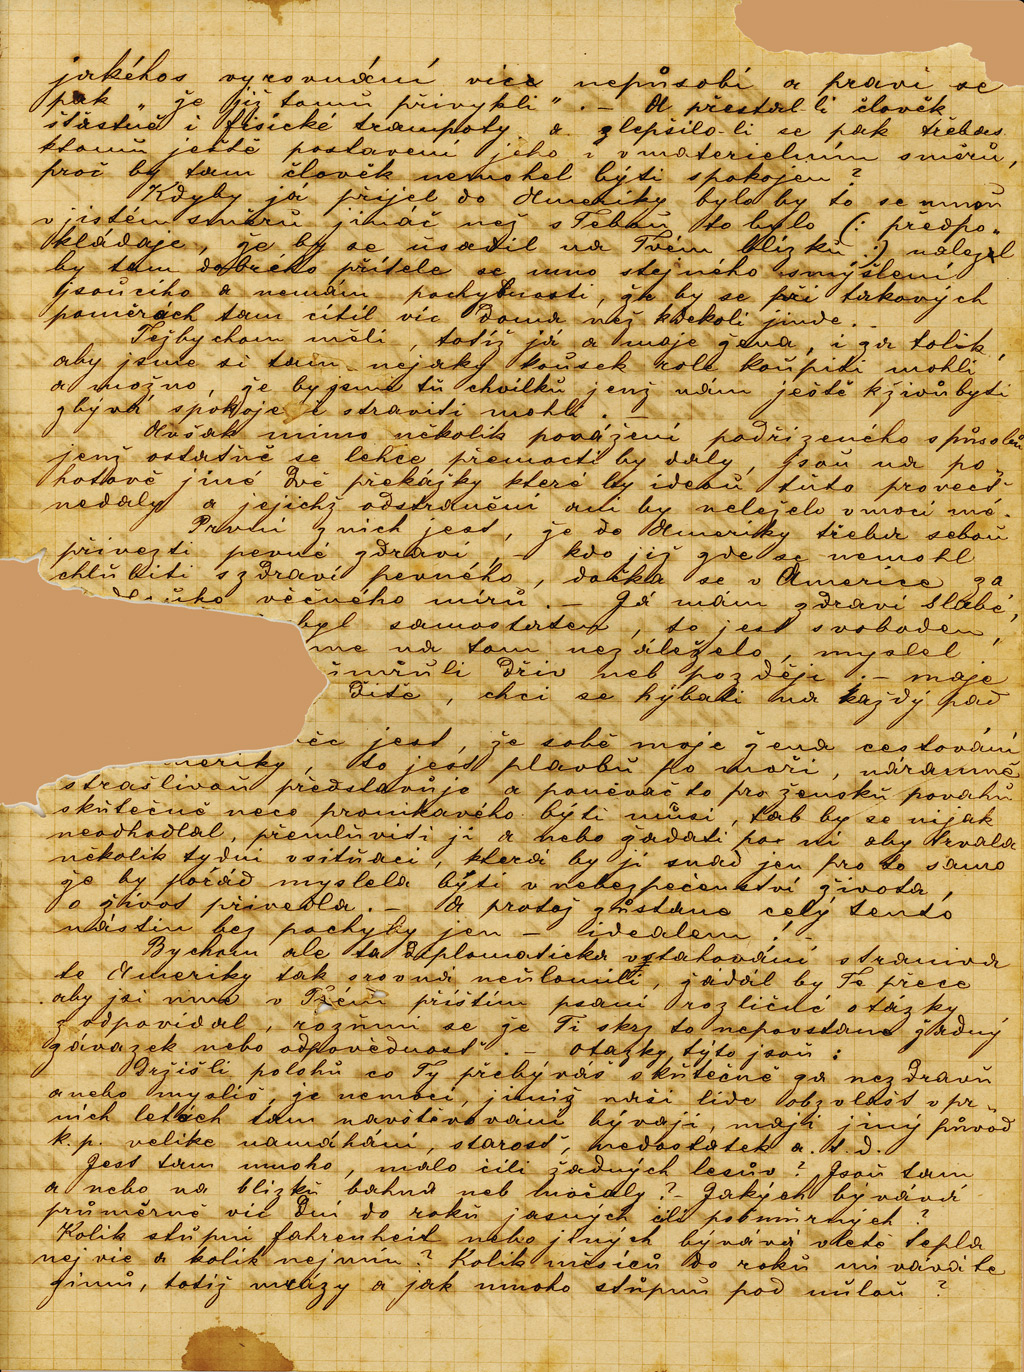 jakéhos vyrovnání více nepůsobí a praví se
pak „ že již tomu přivykli ". – A přestal-li člověk
šťastně i fisické trampoty a zlepšilo-li se pak třebas
ktomu ještě postavení jeho i v materielním směru,
proč by tam člověk nemohel býti spokojen ?
Kdyby já přijel do Ameriky bylo by to se mnou
v jistém směru jináč než s Tebou to bylo (: předpo„
kládaje, že by se usadil na Tvém blízku :) nalezel
by tam dobrého přítele se mno stejného smýšlení
jsoucího a nemám pochybnosti, že by se při takových
poměrách tam cítil víc doma než kdekoli jinde. –
Težbychom měli, totiž já a moje žena, i ga tolik,
aby jsme si tam nejaký kousek role koupiti mohli
a možno, že by jsme tu chvilku jenž nám ještě kživubyti
zbývá spokojeně straviti mohli. –
Avšak mimo několik povážení podřizeného spůsobu
jenž ostatně se lehce přemocti by daly, jsou na po„
hotově jiné dvě překážky které by ideou tuto provect
nedaly a jejichž odstranění ani by neleželo v moci mé.
První z nich jest, že do Ameriky třeba sebou
přivezti pevné zdraví, kdo již zde se nemohl
chlubiti s zdraví pevného, dočka se v Americe za
věčného míru. – Já mám zdraví slabé,
byl samostaten, to jest svoboden,
na tom nezáleželo, myslel
umřuli dřiv neb později. – moje
dítě, chci se hýbati na každý pad
jest, že sobě moje žena cestování
to jest plavbu po moři, náramně
strašlivou představuje a poněvač to pro ženskú povahu
skutečně neco pronikavého býti musí, tak by se nijak
neodhodlal, přemluviti ji a nebo žadati po ní aby trvala
několik tydni v situaci, která by ji snad jen pro to samo
že by pořád myslela býti v nebezpečenství života,
o život přivedla. – A protož zůstane celý tento
nástin bez pochyby jen – idealem !
Bychom ale ta diplomaticka vstahování straniva
te Ameriky tak srovna neulomili, žádál by Te přece
aby jsi mne v Tvém příštím psaní rozličné otázky
zodpovídal, rozumi se že Ti skrz to nepovstane žadný
závazek nebo odpovědnost. – Otazky tyto jsou :
Držišli polohu co Ty přebýváš skutečně za nezdravu
anebo myslíš, že nemoci, jimiž naši lide obzvlášť v pr„
ních letech tam navštěvováni bývají, mají jiný původ
k. p. velike namáhání, starosť, nedostatek a. t. d.
Jest tam mnoho, malo čili žadných lesův ? Jsou tam
a nebo na blízku bahna neb močaly ? – Jakých bývává
průměrně víc dní do roku jasných čili pošmurných ?
Kolik stupni fahrenheit nebo jiných bývává v letě tepla
nejvíc a kolik nejmín ? Kolik měsíců do roku mivávate
zimu, totiž mrázy a jak mnoho stupnu pod nulou ?